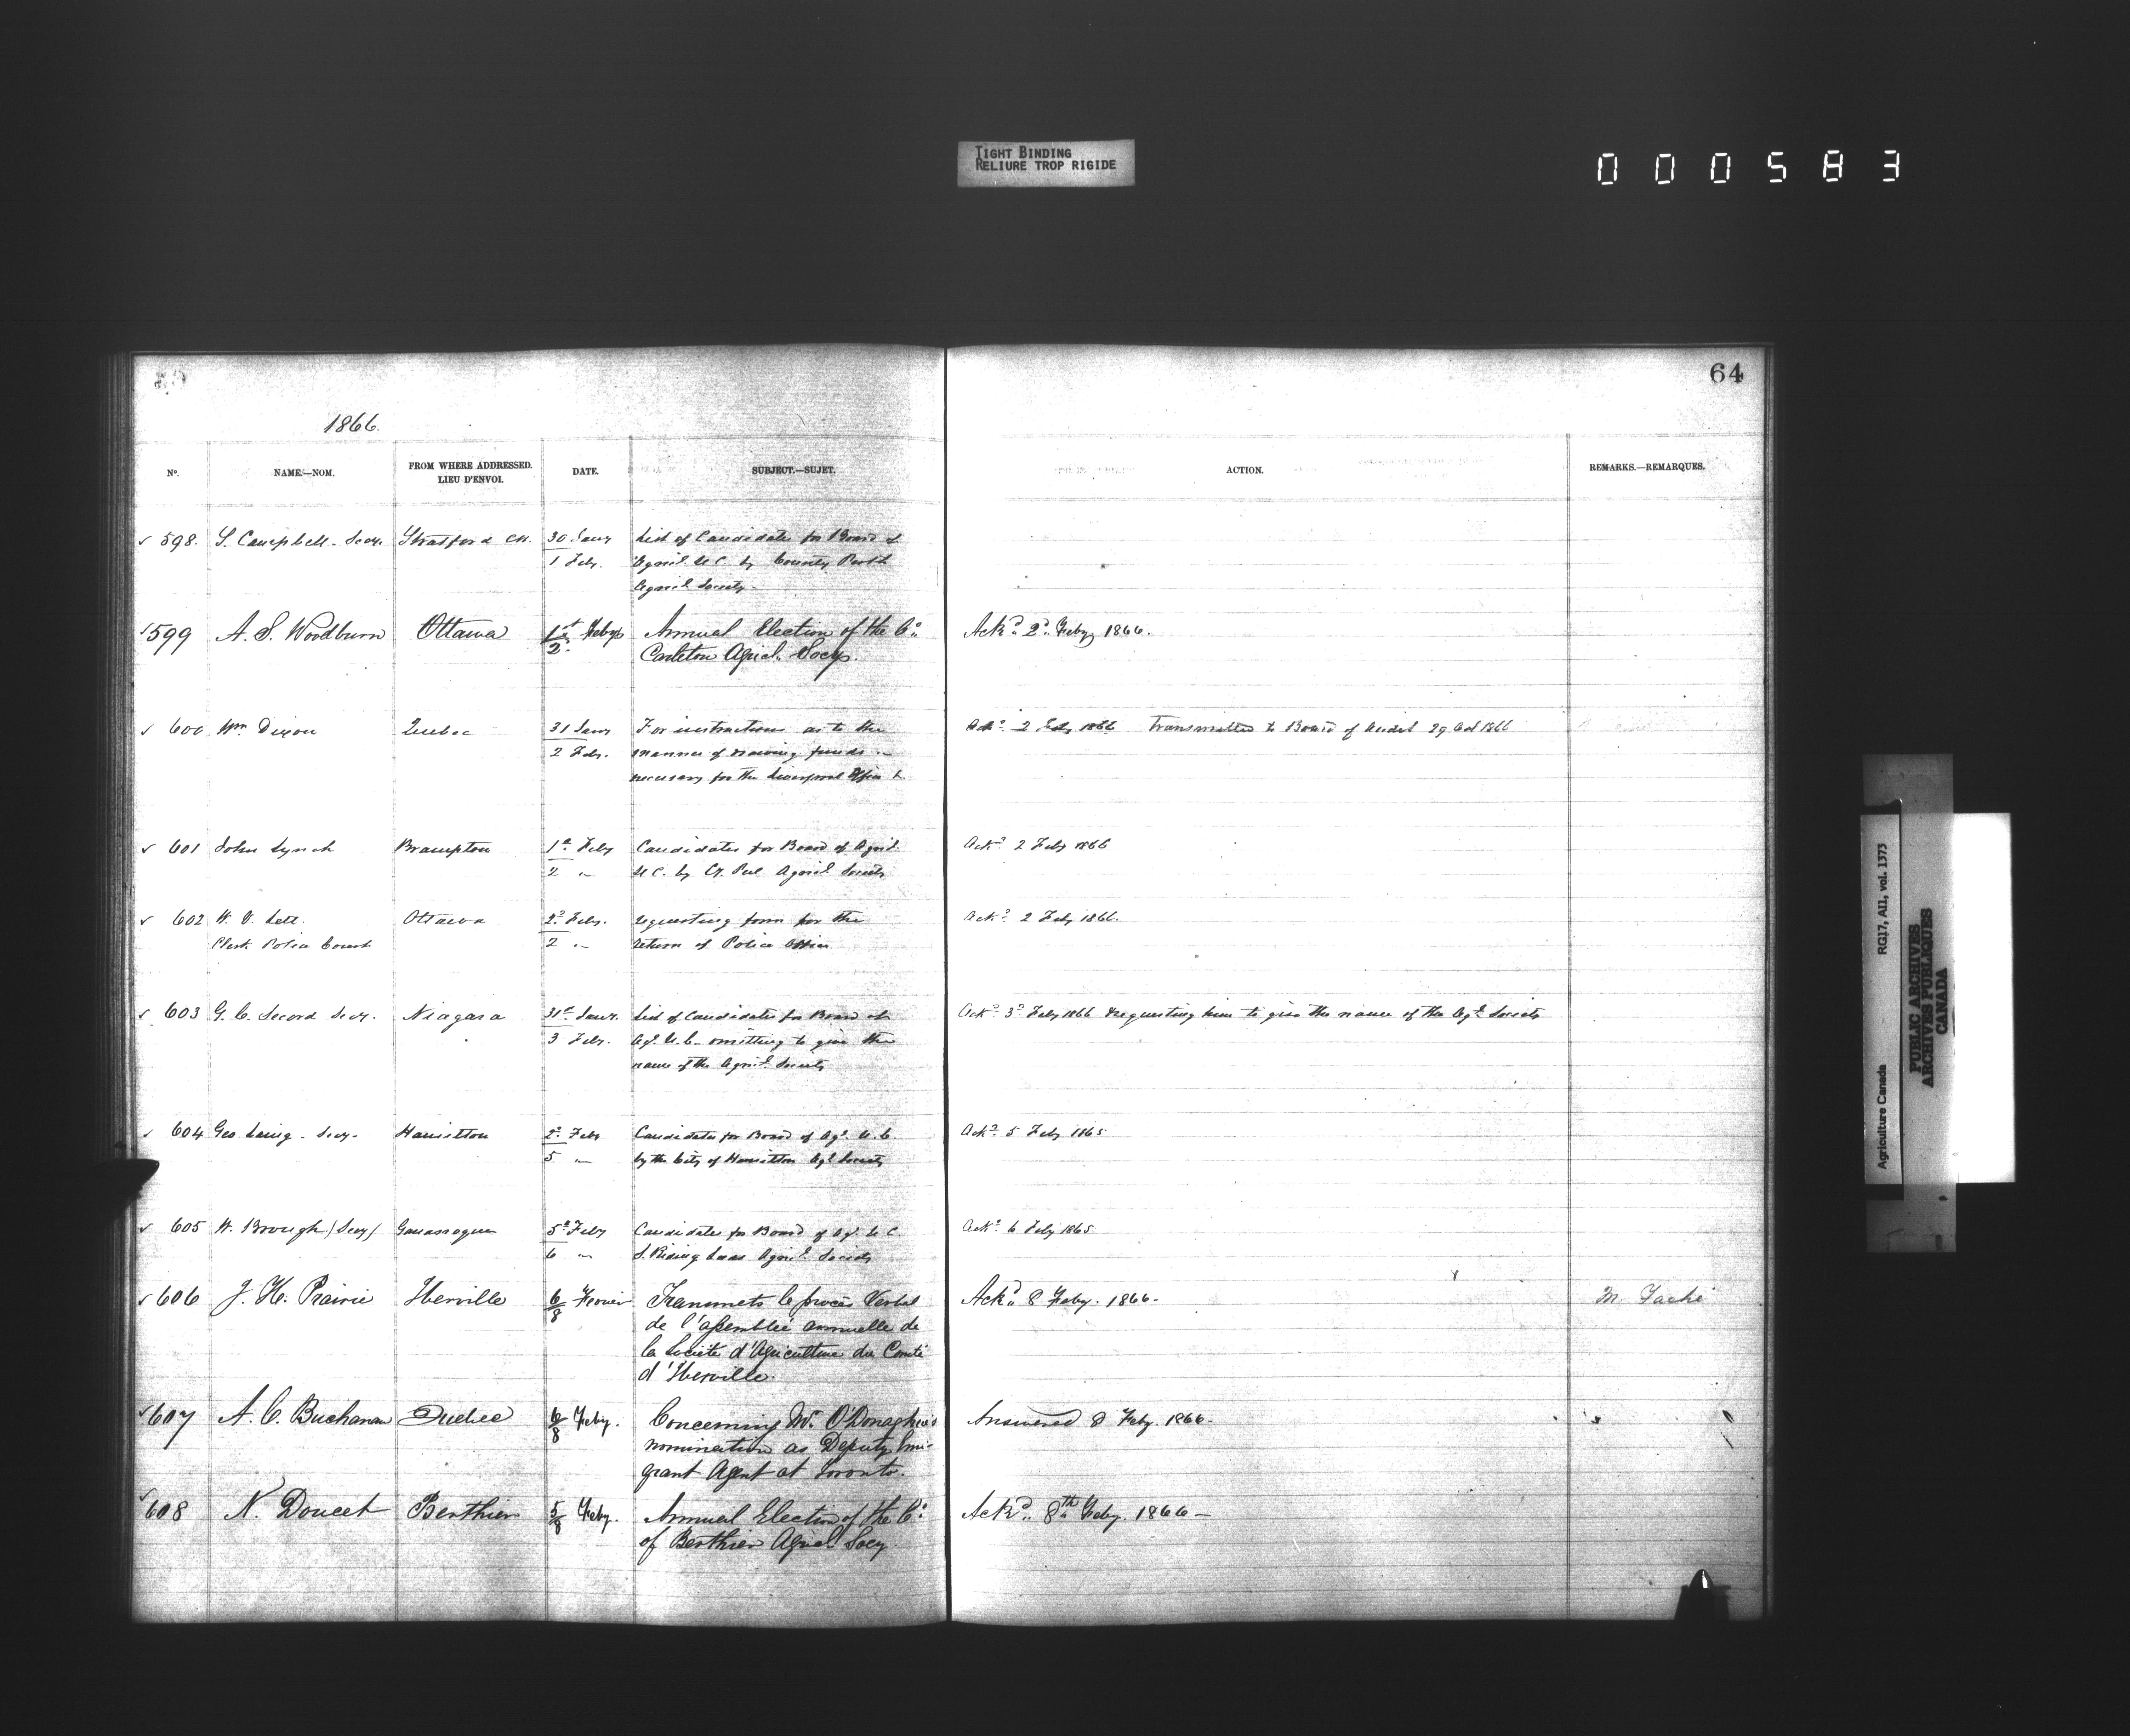 TIGHT BINDING
RELIURE TROP RIGIDE
000583
64
1866.
No. NAME.—NOM. FROM WHERE ADDRESSED. LIEU D'ENVOI. DATE. SUBJECT.—SUJET. ACTION. REMARKS.—REMARQUES.
598. S. Campbell - Secy. Stratford CW. 30 Jany List of Candidates for Board of
1 Feby. Agricl. U C by County Perth
Agricl Society -
599 A. S. Woodburn Ottawa 1st Feby Annual Election of the Co. Ackd. 2d. Feby 1866.
2. Carleton Agricl. Socy.
600 Wm Dixon Quebec 31 Jany For instructions as to the Ackd. 2 Feby 1866 Transmitted to Board of Audit 29 Oct 1866
2 Feby. manner of drawing funds
necessary for the Liverpool Office
601 John Lynch Brampton 1st Feby Candidates for Board of Agricl. Ackd 2 Feby 1866
2 " U C. by Cy. Peel Agricl Society
602 W. P. Lett. Ottawa 2d Feby. requesting form for the Ackd. 2 Feby 1866.
Clerk Police Court 2 " return of Police Office
603 G. C. Secord Secy. Niagara 31st Jany. List of Candidates for Board of Ackd 3d Feby 1866 requesting him to give the name of the Agl Society
3 Feby. Agl. U. C. omitting to give the
name of the Agricl. Society
604 Geo Laing - Secy - Hamilton 2d. Feby Candidates for Board of Agl. U. C. Ackd. 5 Feby 1865
5 " by the City of Hamilton Agl Society
605 W. Brough (Secy) Gananoque 5th Feby Candidates for Board of Agl. U C. Ackd. 6 Feby 1865
6 " S. Riding Leeds Agricl Society
606 J. H. Prairie Iberville 6/8 Fevrier Transmets le procès Verbal Ackd. 8 Feby. 1866 - M. Taché
de l'assemblée annuelle de
la Société d'Agriculture du Comté
d'Iberville.
607 A. C. Buchanan Quebec 6/8 Feby. Concerning Mr. O'Donaghue's Answered 8 Feby. 1866 -
nomination as Deputy Emi-
grant Agent at Toronto.
608 N. Doucet Berthier 5/8 Feby. Annual Election of the Co. Ackd. 8th Feby. 1866 -
of Berthier Agricl. Socy.
Agriculture Canada RG17, AII, vol. 1373
PUBLIC ARCHIVES
ARCHIVES PUBLIQUES
CANADA